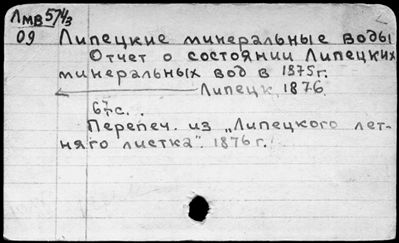 Лмв 57 4/3
09 Липецкие минеральные воды
Отчет о состоянии Липецких
минеральных вод в 1875 г.
Липецк 1876
67 с.
Перепеч. из „Липецкого лет-
няго листка". 1876 г.